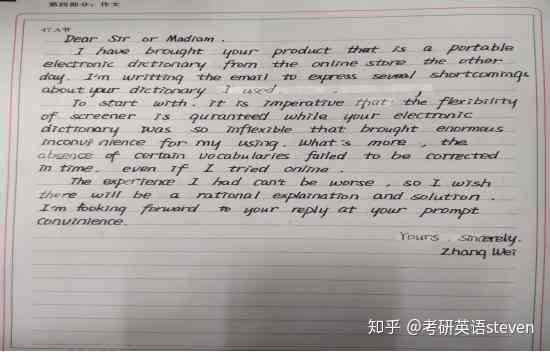 第四部分：作文
47.A节
Dear Sir or Madiam.
I have brought your product that is a portable
electronic dictionary from the online store the other
day. I'm writting the email to express seveal shortcomings
about your dictionary I used.
To start with. it is imperative that the flexibility
of screener is quranteed while your electronic
dictionary was so inflexible that brought enormous
inconvinience for my using. What's more, the
absence of certain vocabularies failed to be corrected
in time. even if I tried online.
The experience I had can't be worse, so I wish
there will be a rational explaination and solution.
I'm fooking forward to your reply at your prompt
convinience.
Yours, sincerely.
Zhang Wei
知乎 @考研英语steven